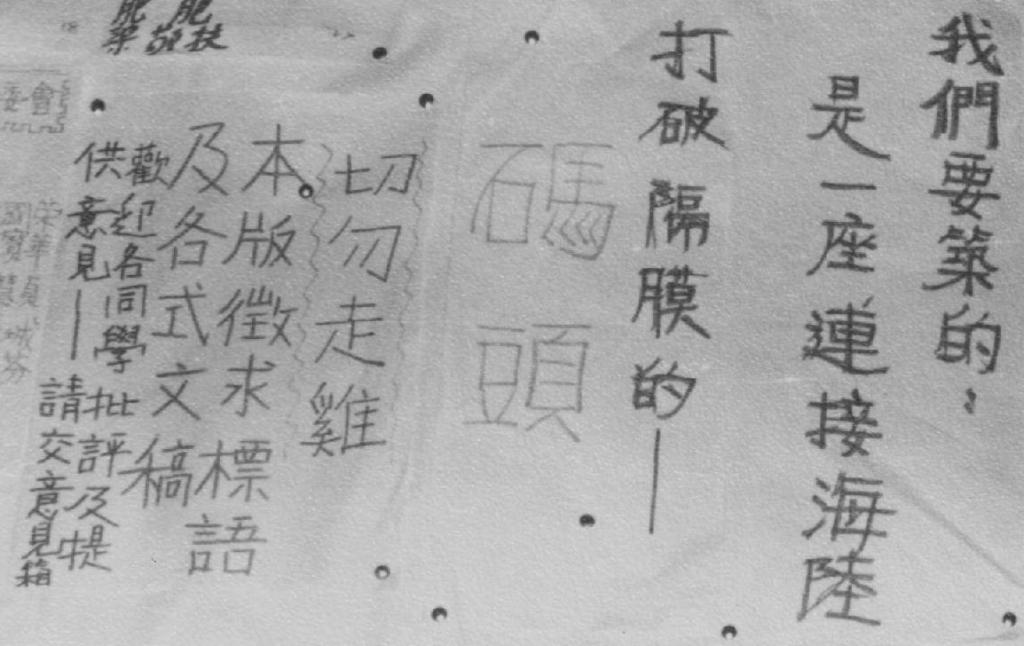 我們要築的、
是一座連接海陸
打破隔膜的—
碼頭
切勿走雞
本版徵求標語
及各式文稿
歡迎各同學批評及提
供意見—請交意見箱
會